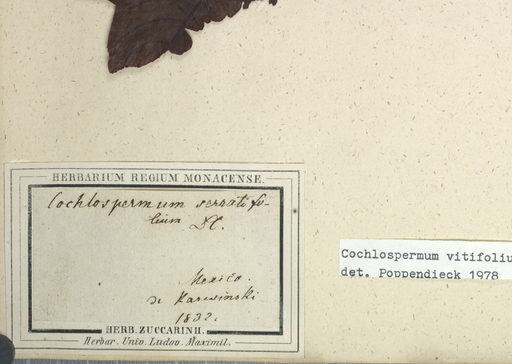 HERBARIUM REGIUM MONACENSE.
Cochlospermum serratifo-
lium DC.
Mexico.
de Karwinski
1832.
HERB. ZUCCARINII.
Herbar. Univ. Ludov. Maximil.
Cochlospermum vitifoliu
det. Poppendieck 1978